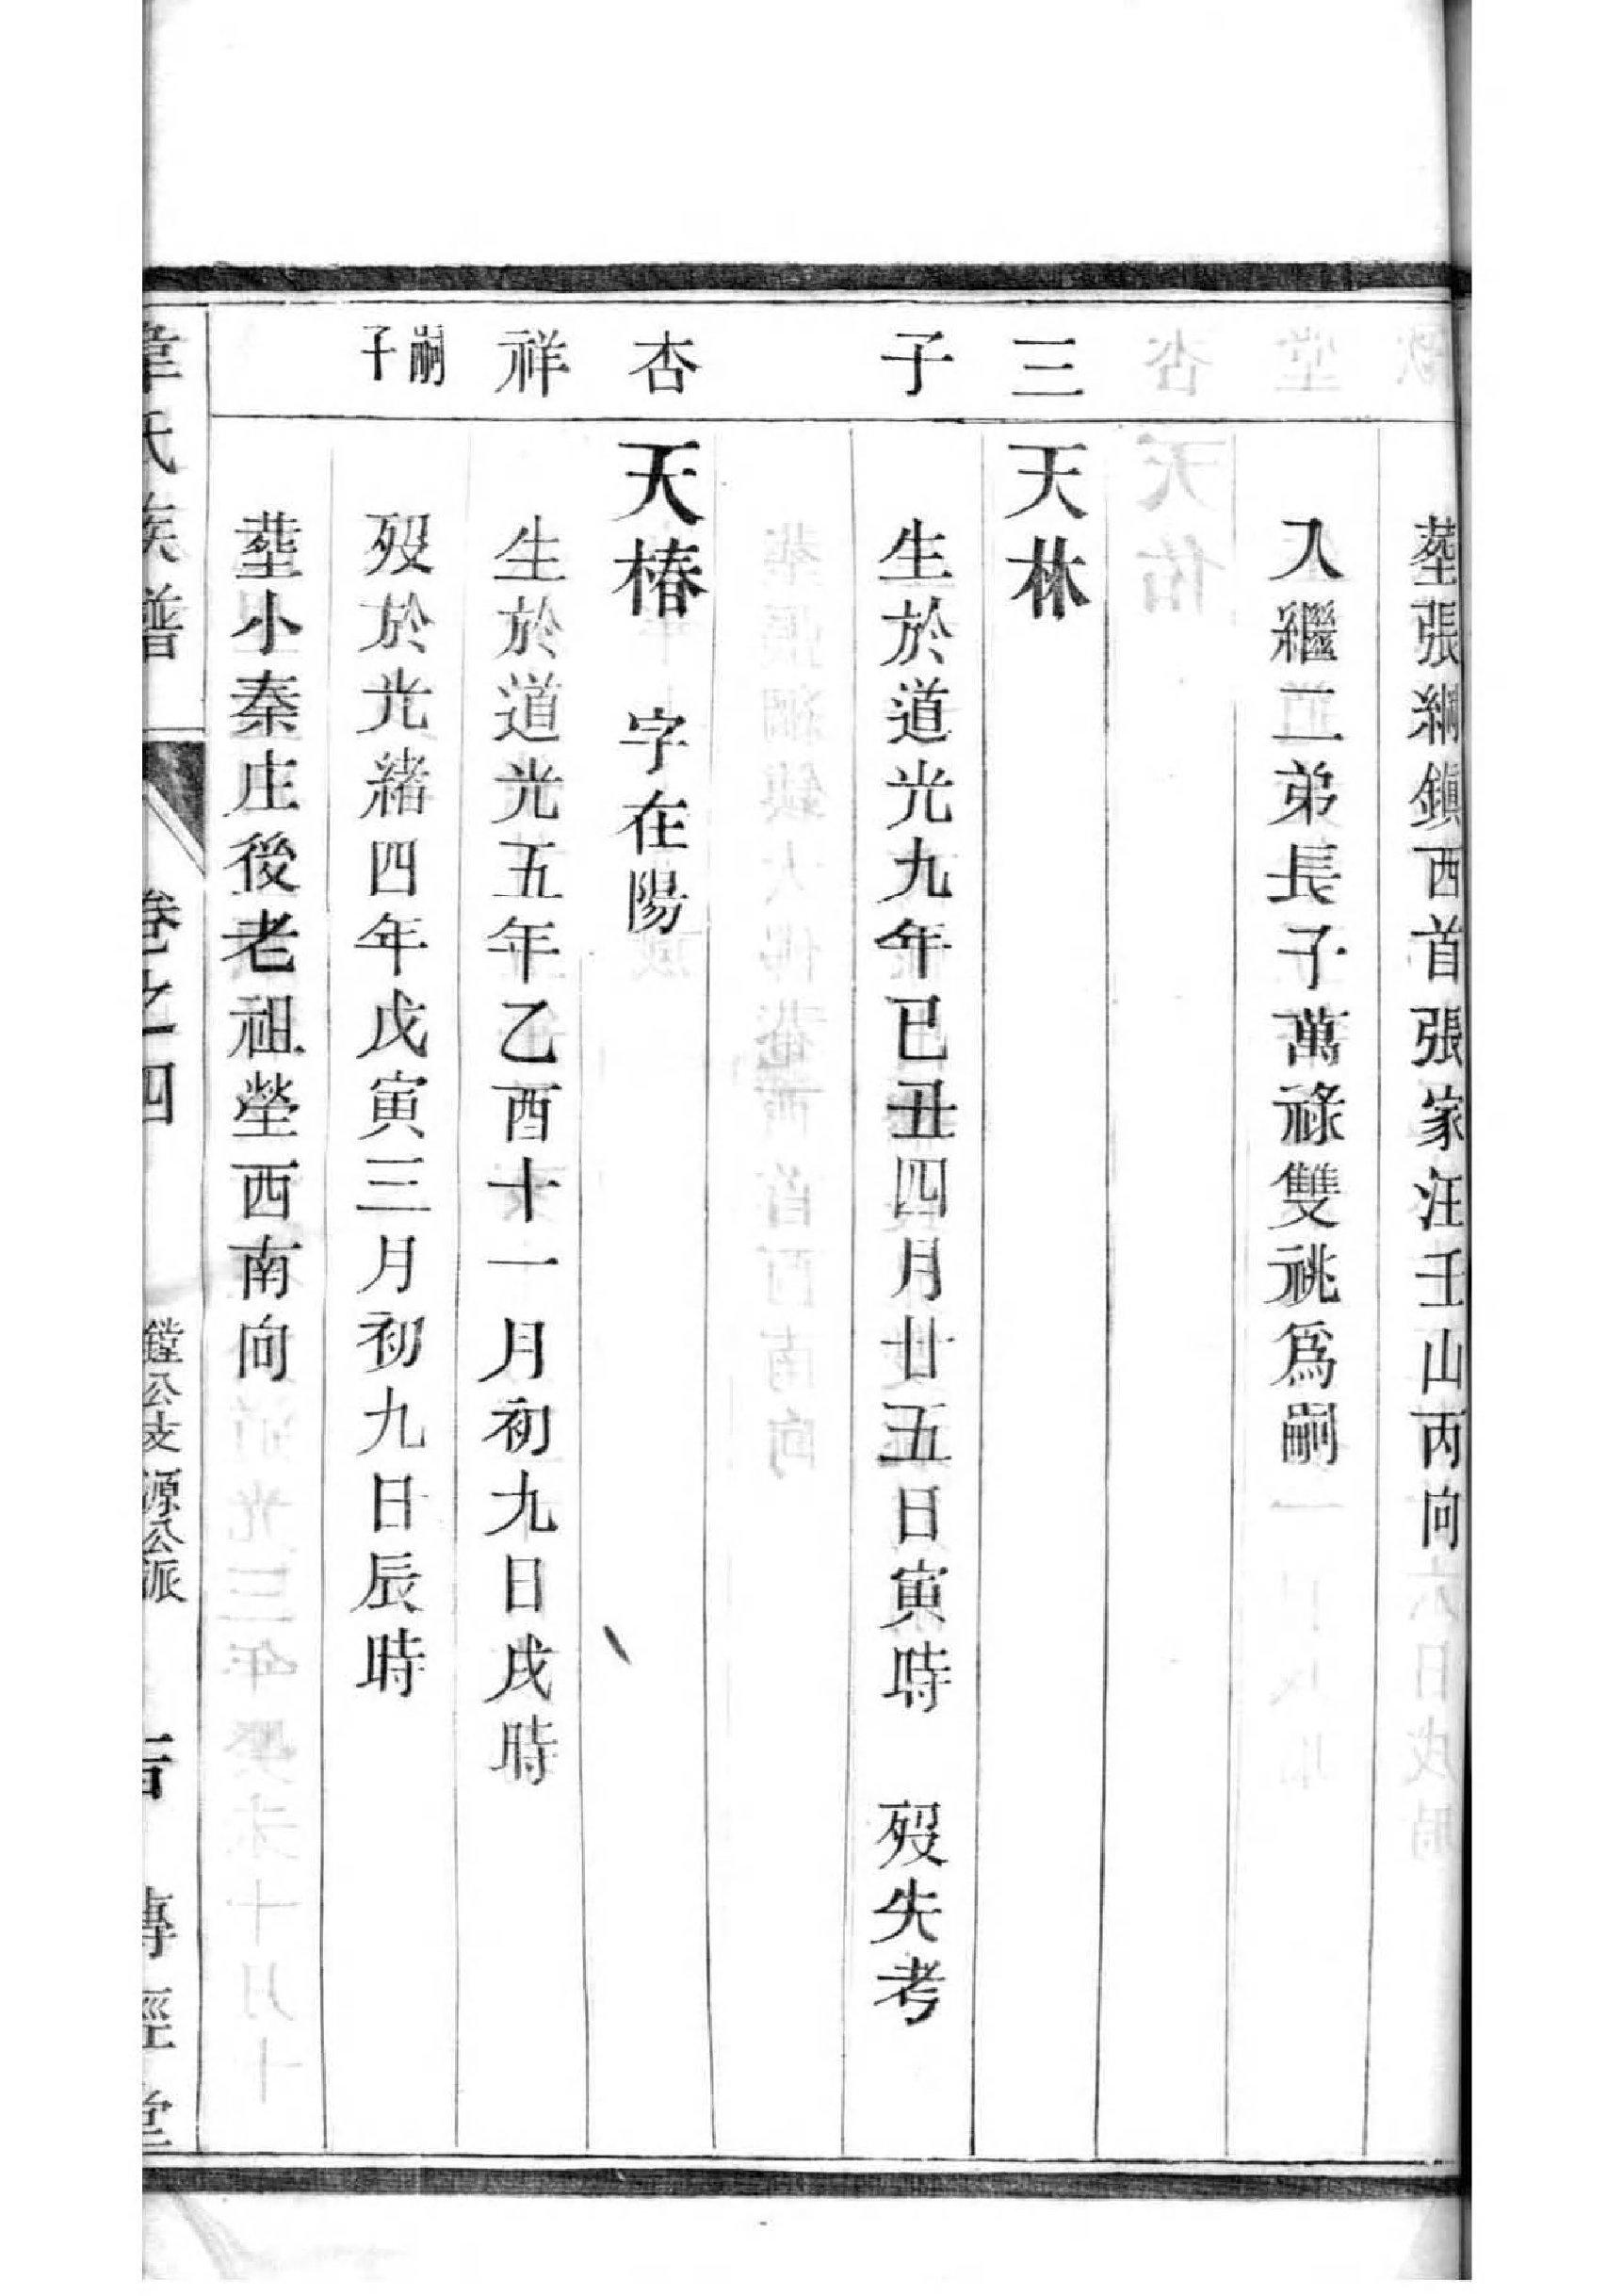 塟張綱鎮西首張家汪壬山丙向
入繼二弟長子萬祿雙祧爲嗣
三
天林
子
生於道光九年已丑四月廿五日寅時 歿失考
杏
天椿 字在陽
祥
生於道光五年乙酉十一月初九日戌時
嗣子
歿於光緒四年戊寅三月初九日辰時
塟小秦庄後老祖塋西南向
韋氏族譜 卷之四 鏜公支源公派 傳經堂